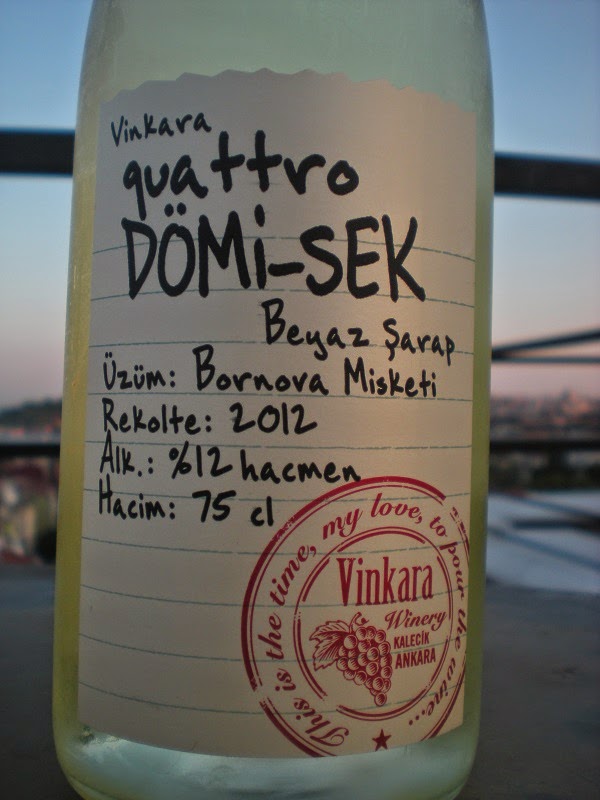 Vinkara
quattro
DÖMİ-SEK
Beyaz Şarap
Üzüm: Bornova Misketi
Rekolte: 2012
Alk.: %12 hacmen
Hacim: 75 cl
This is the time, my love, to pour the wine...
Vinkara
Winery
KALECİK
ANKARA